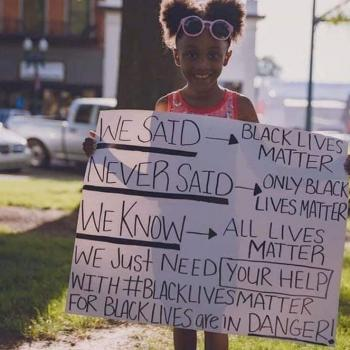 WE SAID → BLACK LIVES MATTER
NEVER SAID → ONLY BLACK LIVES MATTER
WE KNOW → ALL LIVES MATTER
WE JUST NEED YOUR HELP
WITH #BLACKLIVESMATTER
FOR BLACK LIVES are in DANGER!